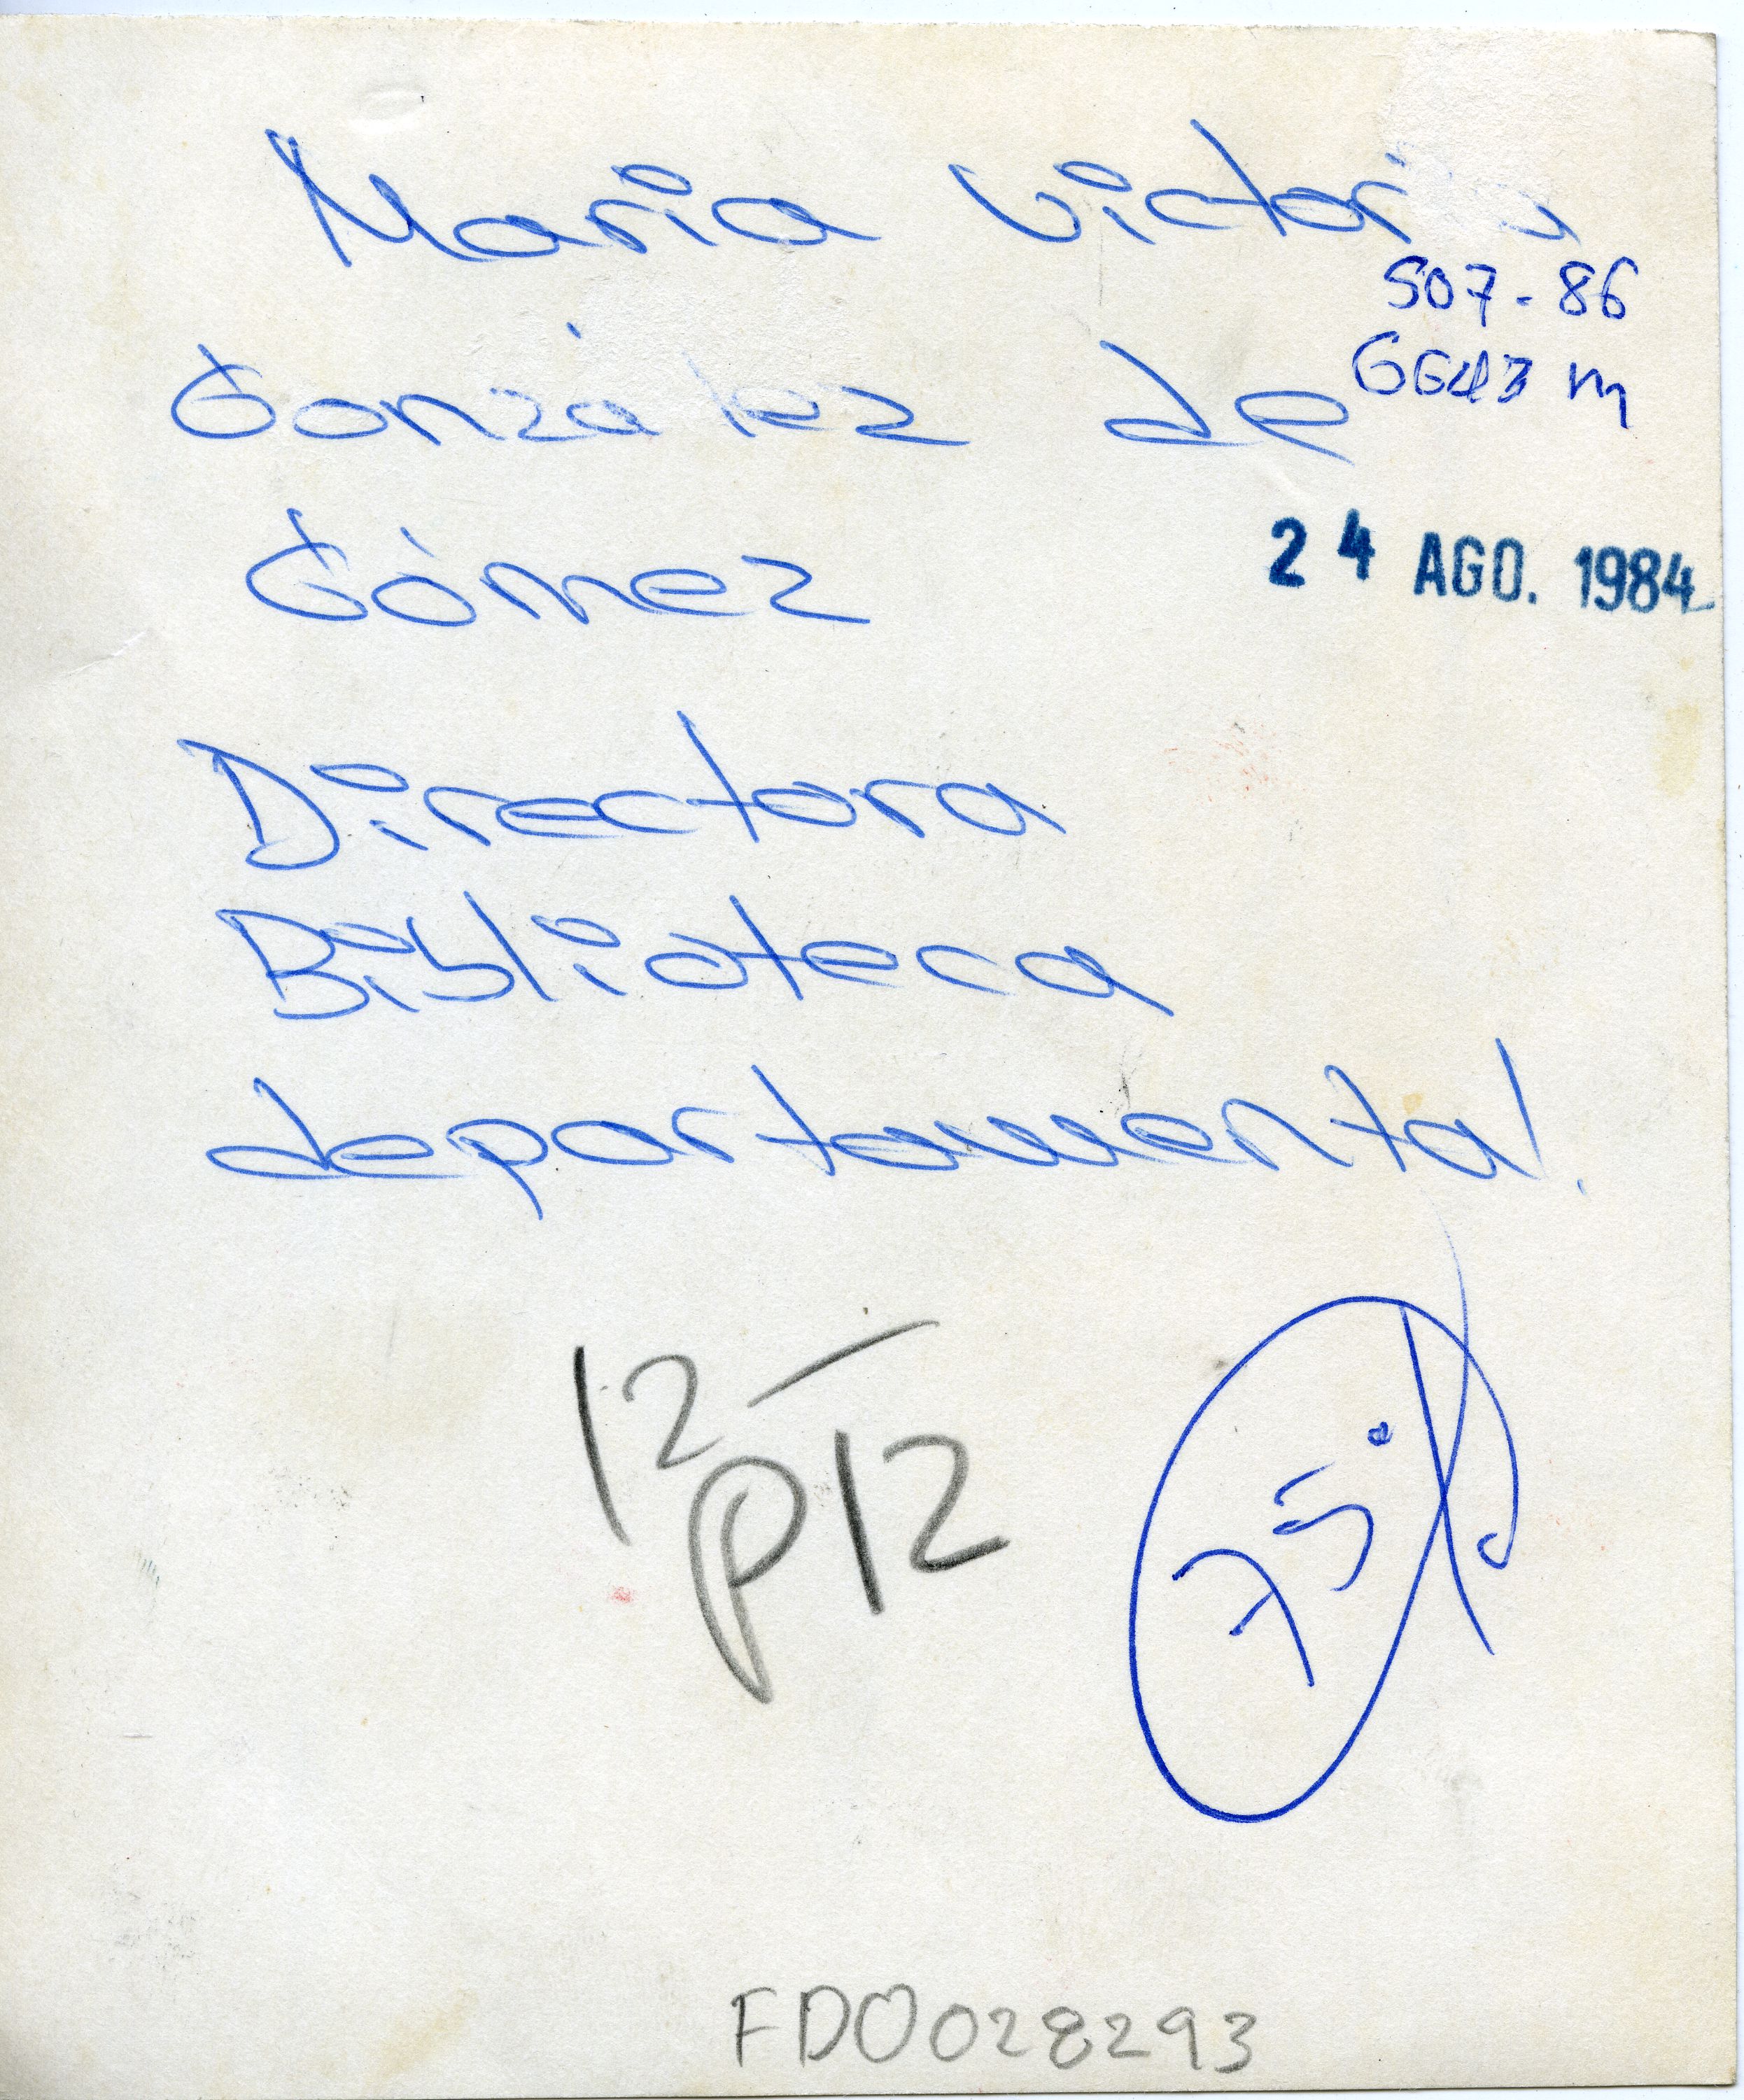 Maria Victoria
507-86
González de
G643 m
Gómez
24 AGO. 1984
Directora
Biblioteca
departamental.
12
P12
FD0028293